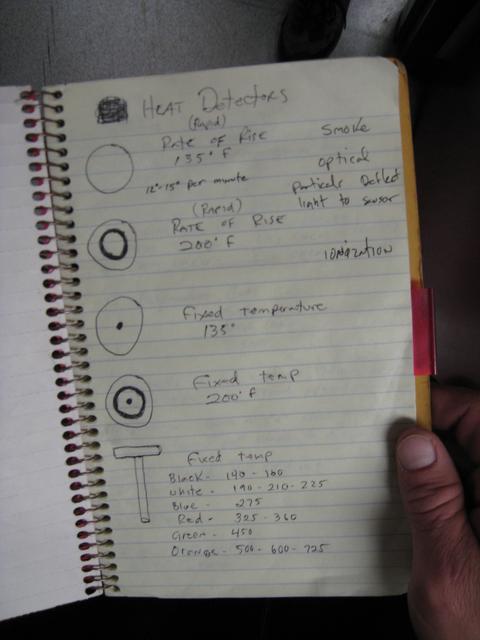 HEAT Detectors
(Rapid)
Rate of Rise
135° F
12°-15° per minute
(Rapid)
Rate of Rise
200° F
Fixed temperature
135°
Fixed temp
200° F
Fixed temp
Black - 140 - 160
white - 190 - 210 - 225
Blue - 275
Red - 325 - 360
Green - 450
Orange - 500 - 600 - 725
Smoke
optical
light to sensor
ionization